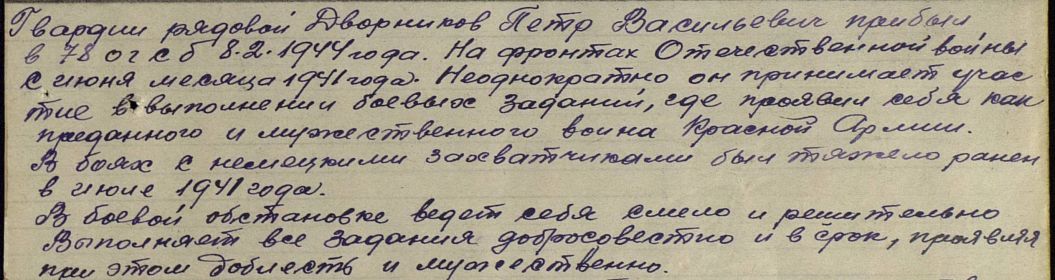 Гвардии рядовой Дворников Петр Васильевич прибыл
в 78 огсб 8.2.1944 года. На фронтах Отечественной войны
с июня месяца 1941 года. Неоднократно он принимает учас
тие в выполнении боевых заданий, где проявил себя как
преданного и мужественного воина Красной Армии.
В боях с немецкими захватчиками был тяжело ранен
в июле 1941 года.
В боевой обстановке ведет себя смело и решительно
Выполняет все задания добросовестно и в срок, проявляя
при этом доблесть и мужественно.